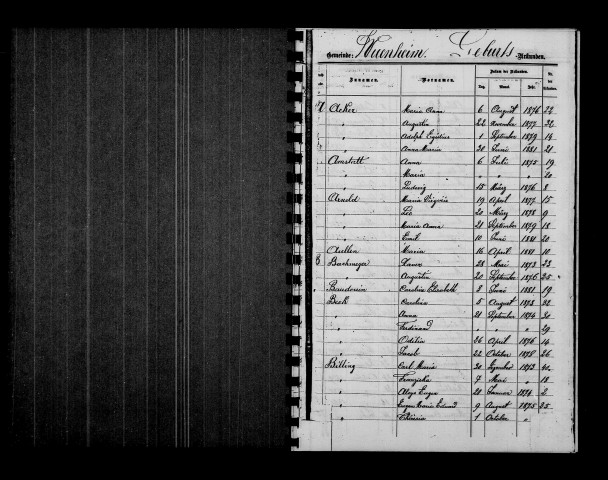 Gemeinde: Wuenheim. Geburts-Urkunden.
Zunamen. Vornamen. Datum der Urkunden. No. der Urkunden.
Tag. Monat Jahr.
Acker Maria Anna 6 August 1876 22
" Augustin 22 November 1877 32
" Adolph Egidius 1 September 1879 14
" Anna Maria 30 Juni 1881 21
Amstutt Anna 6 Juli 1875 19
" Maria " " " 20
" Ludwig 15 März 1876 8
Arnold Maria Virginie 19 April 1877 15
" Leo 20 März 1878 9
" Maria Anna 21 September 1879 18
" Emil 10 Juni 1881 20
Maria 16 April 1881 10
B 28 Mai 1873 23
" Augustin 20 September 1876 25
Baudouin Carolina Elisabeth 8 Juni 1881 19
Beck Carolina 5 August 1872 32
" Anna 21 September 1874 30
" Ferdinand " " " 29
" Odilia 26 April 1876 14
" Jacob 22 October 1878 26
Billing Carl Maria 30 1873 40
" Franziska 7 Mai " 18
" Aloys Eugen 20 Januar 1874 2
" Eugen Maria Eduard 9 August 1875 25
" 1 October "